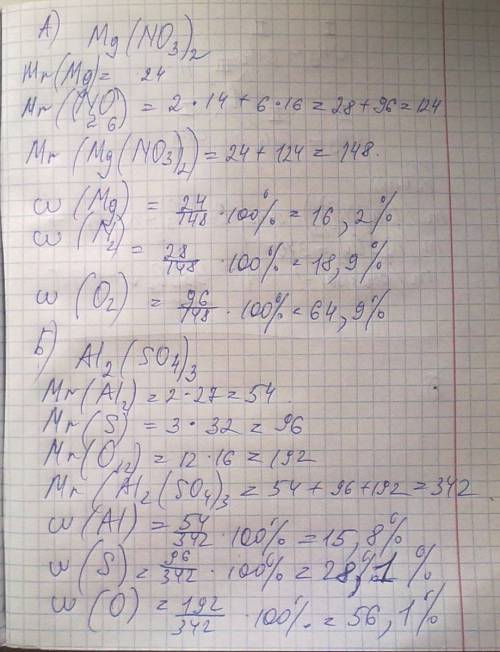 А) Mg(NO3)2
Mr(Mg)= 24
Mr(N2O6) = 2·14+6·16=28+96=124
Mr(Mg(NO3)2)=24+124=148.
ω(Mg) = 24/148·100%=16,2%
ω(N2) = 28/148·100%=18,9%
ω(O2) = 96/148·100%=64,9%
Б) Al2(SO4)3
Mr(Al2)=2·27=54.
Mr(S)=3·32=96
Mr(O12)=12·16=192
Mr(Al2(SO4)3=54+96+192=342
ω(Al)=54/342·100%=15,8%
ω(S)=96/342·100%=28,1%
ω(O)=192/342·100%.=56,1%